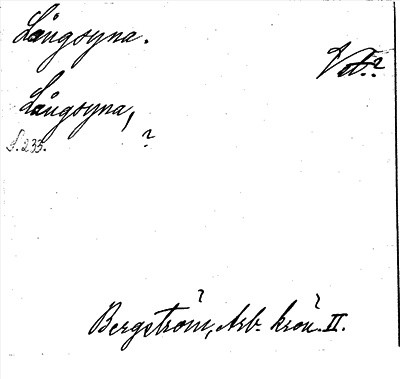 Långsyna.
Vd.?
Långsyna,
S. 233.
?
Bergström, Arb. krön. II.